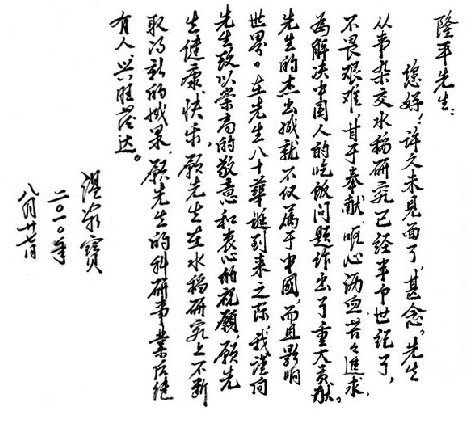 隆平先生：
您好！许久未见面了，甚念。先生
从事杂交水稻研究已经半个世纪了，
不畏艰难，甘于奉献，呕心沥血，苦々追求，
为解决中国人的吃饭问题作出了重大贡献。
先生的杰出成就不仅属于中国，而且影响
世界。在先生八十华诞到来之际，我谨向
先生致以崇高的敬意和衷心的祝愿，愿先
生健康、快乐，愿先生在水稻研究上不断
取得新的成果，愿先生的科研事业后继
有人、兴旺发达。
温家宝
二〇一〇年
八月廿七日